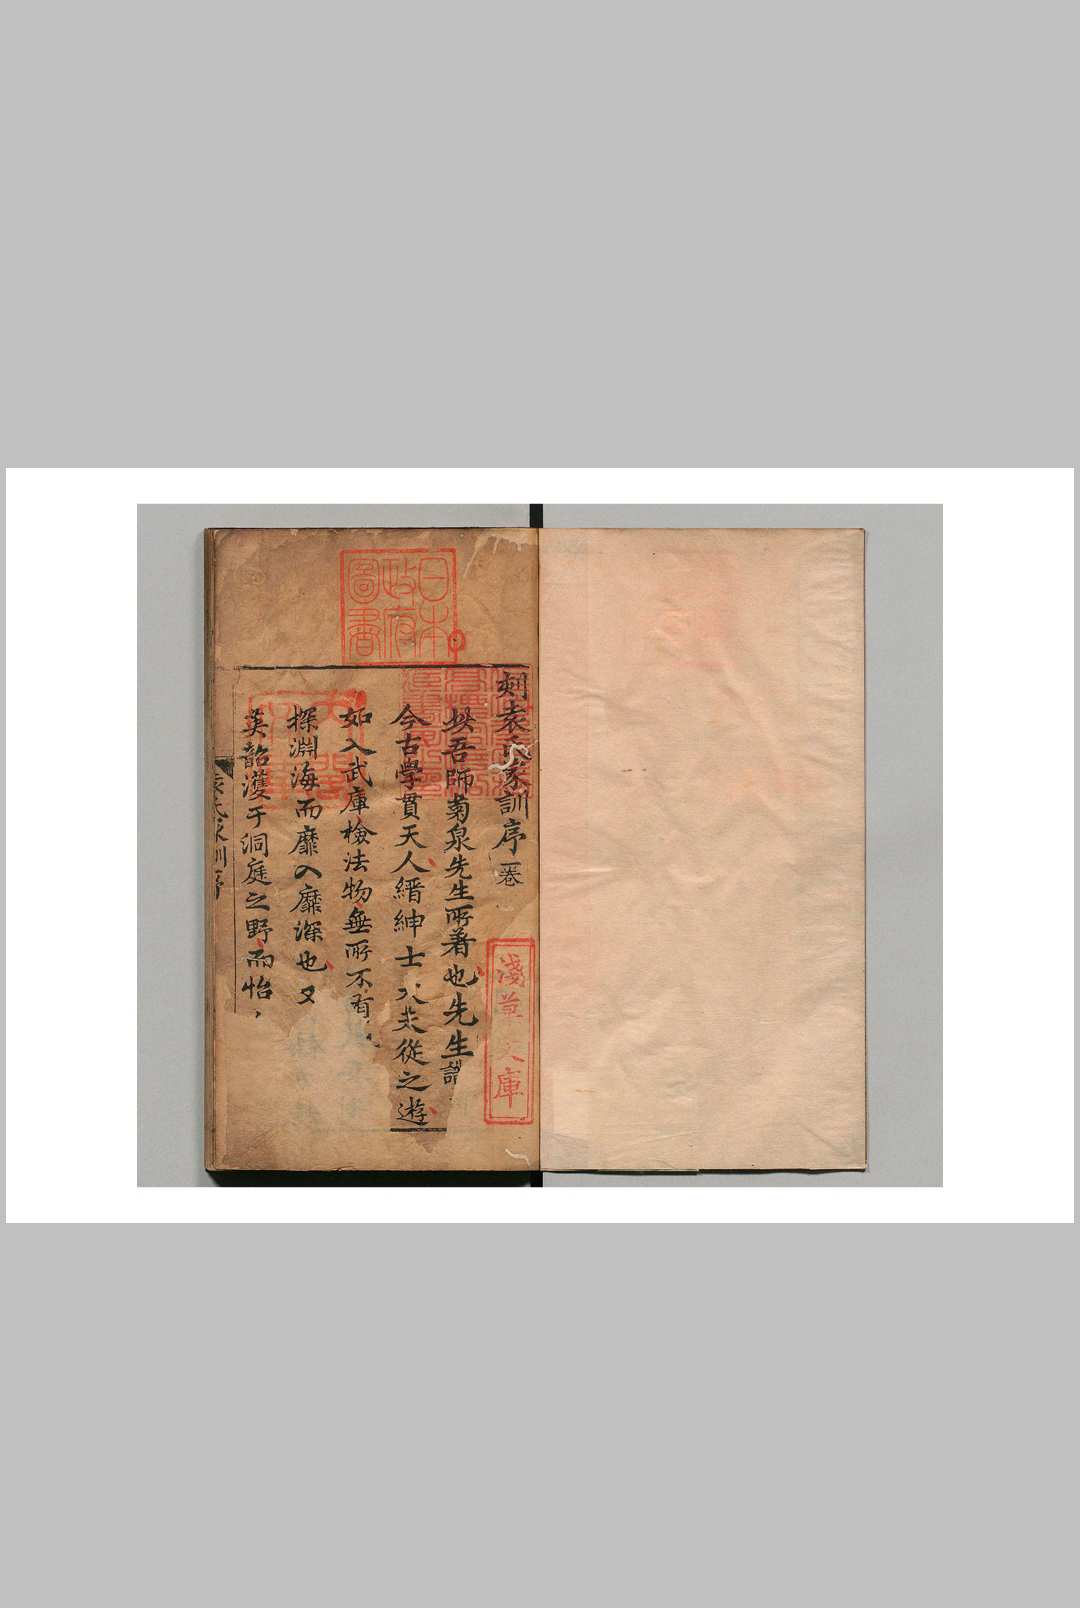 刻袁氏家訓序 一卷
吾師菊泉先生所著也先生
今古學貫天人縉紳士從之遊
如入武庫檢法物無所不有
探淵海而靡入靡深也又
奏韶濩于洞庭之野而怡
袁氏家訓序
日本
政府
圖書
淺草文庫